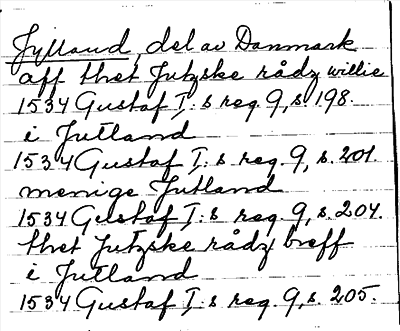 Jylland, del av Danmark
aff thet Jutzske rådz willie
1534 Gustaf I:s reg. 9, s 198.
i Jutland
1534 Gustaf I:s reg. 9, s. 201.
menige Jutland
1534 Gustaf I:s reg. 9, s. 204.
thet Jutzske rådz breff
i Jutland
1534 Gustaf I:s reg. 9, s. 205.